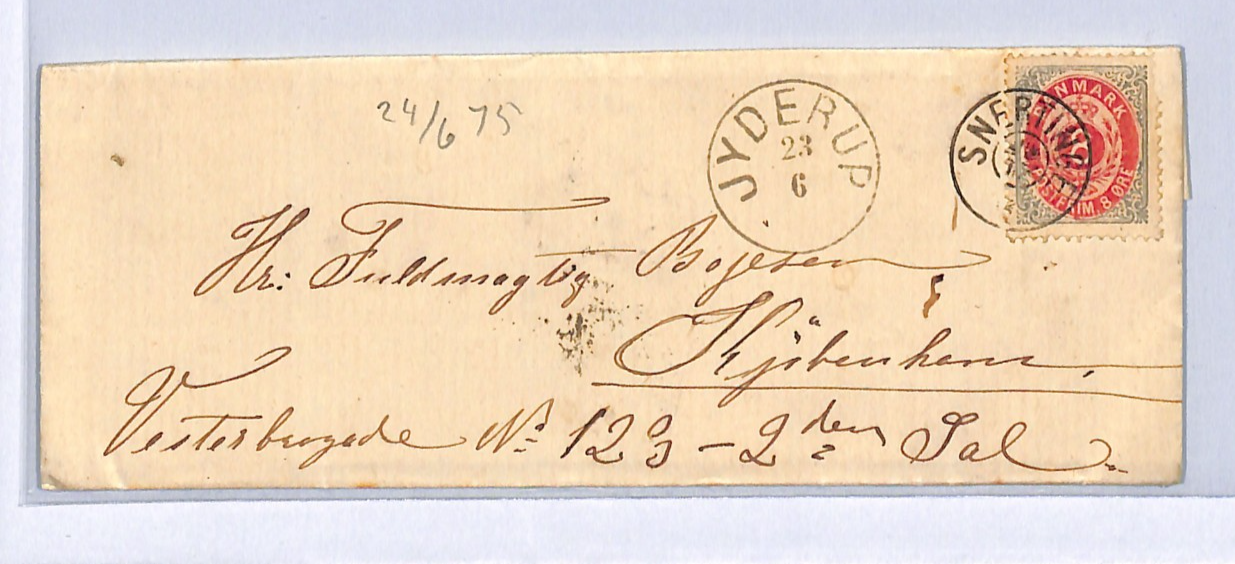 24/6 75
JYDERUP
23
6
SNERTING
DANMARK
POSTFRIM. 8 ØRE
Hr: Fuldmægtig Bojesen
Kjöbenhavn.
Vesterbrogade No. 123 - 2den Sal